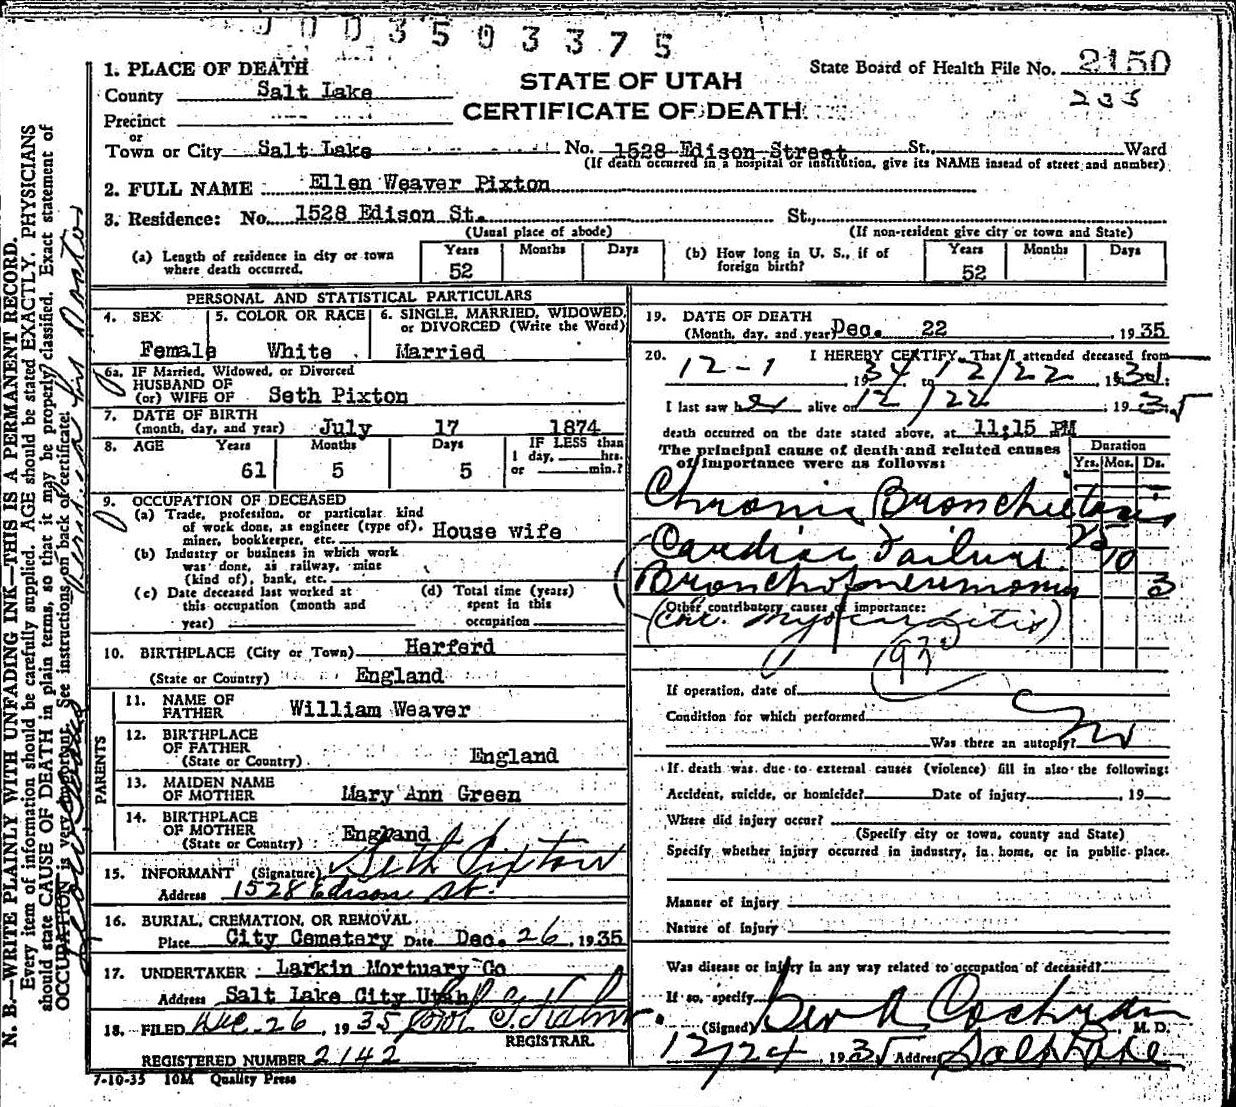 0003503375
1. PLACE OF DEATH
STATE OF UTAH
CERTIFICATE OF DEATH
State Board of Health File No. 2150
235
County Salt Lake
Precinct
or
Town or City Salt Lake No. 1528 Edison Street St., Ward
(If death occurred in a hospital or institution, give its NAME insead of street and number)
2. FULL NAME Ellen Weaver Pixton
3. Residence: No. 1528 Edison St. St.,
(Usual place of abode) (If non-resident give city or town and State)
(a) Length of residence in city or town where death occurred. Years 52 Months Days
(b) How long in U. S., if of foreign birth? Years 52 Months Days
PERSONAL AND STATISTICAL PARTICULARS
4. SEX Female
5. COLOR OR RACE White
6. SINGLE, MARRIED, WIDOWED, or DIVORCED (Write the Word) Married
6a. IF Married, Widowed, or Divorced
HUSBAND OF
(or) WIFE OF Seth Pixton
7. DATE OF BIRTH
(month, day, and year) July 17 1874
8. AGE Years 61 Months 5 Days 5 IF LESS than 1 day, hrs. or min.?
9. OCCUPATION OF DECEASED
(a) Trade, profession, or particular kind
of work done, as engineer (type of),
miner, bookkeeper, etc. House wife
(b) Industry or business in which work
was done, as railway, mine
(kind of), bank, etc.
(c) Date deceased last worked at
this occupation (month and
year)
(d) Total time (years)
spent in this
occupation
10. BIRTHPLACE (City or Town) Herferd
(State or Country) England
PARENTS
11. NAME OF FATHER William Weaver
12. BIRTHPLACE OF FATHER
(State or Country) England
13. MAIDEN NAME OF MOTHER Mary Ann Green
14. BIRTHPLACE OF MOTHER
(State or Country) England
15. INFORMANT (Signature) Seth Pixton
Address 1528 Edison St.
16. BURIAL, CREMATION, OR REMOVAL
Place City Cemetery Date Dec. 26, 1935
17. UNDERTAKER Larkin Mortuary Co
Address Salt Lake City Utah
18. FILED Dec. 26, 1935
REGISTRAR.
REGISTERED NUMBER 2142
7-10-35 10M Quality Press
19. DATE OF DEATH
(Month, day, and year) Dec. 22 1935
20. I HEREBY CERTIFY, That I attended deceased from
12-1, 1934 to 12/22, 1935
I last saw her alive on 12/22, 1935
death occurred on the date stated above, at 11;15 PM
The principal cause of death and related causes
of importance were as follows:
Duration
Yrs. Mos. Ds.
Chronic Bronchiectasis 25
Cardiac Failure 10
Bronchopneumonia 3
Other contributory causes of importance:
(Chr. Myocarditis)
If operation, date of
Condition for which performed
Was there an autopsy? No
If death was due to external causes (violence) fill in also the following:
Accident, suicide, or homicide? Date of injury , 19
Where did injury occur?
(Specify city or town, county and State)
Specify whether injury occurred in industry, in home, or in public place.
Manner of injury
Nature of injury
Was disease or injury in any way related to occupation of deceased?
If so, specify
(Signed) Cochran M. D.
12/24 1935 Address Salt Lake
N. B.—WRITE PLAINLY WITH UNFADING INK—THIS IS A PERMANENT RECORD.
Every item of information should be carefully supplied. AGE should be stated EXACTLY. PHYSICIANS
should state CAUSE OF DEATH in plain terms, so that it may be properly classified. Exact statement of
OCCUPATION is very important. See instructions on back of certificate.